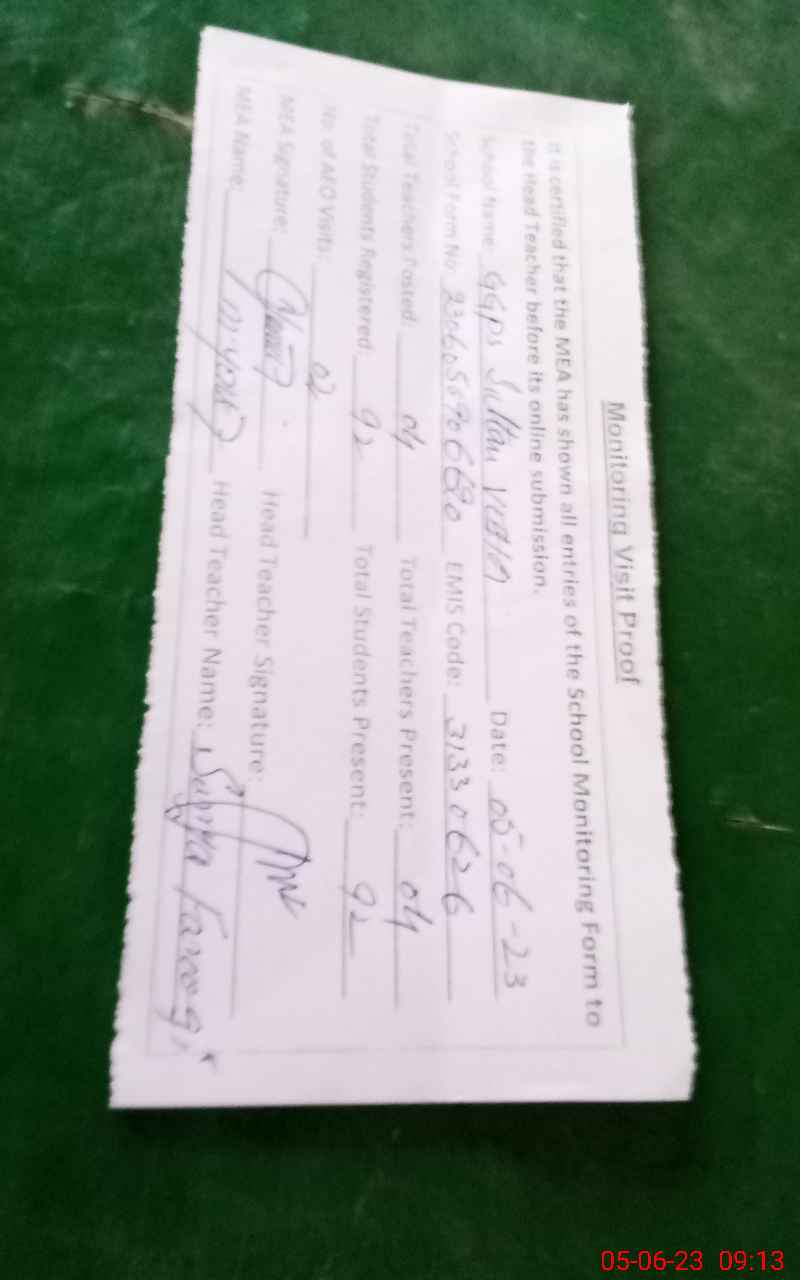 Monitoring Visit Proof
It is certified that the MEA has shown all entries of the School Monitoring Form to
the Head Teacher before its online submission.
School Name: GGPS Sultan Date: 05-06-23
School Form No: EMIS Code: 31330626
Total Teachers Posted: 04 Total Teachers Present: 04
Total Students Registered: 92 Total Students Present: 92
No. of AEO Visits: 02
MEA Signature: Head Teacher Signature:
MEA Name: Head Teacher Name:
05-06-23 09:13